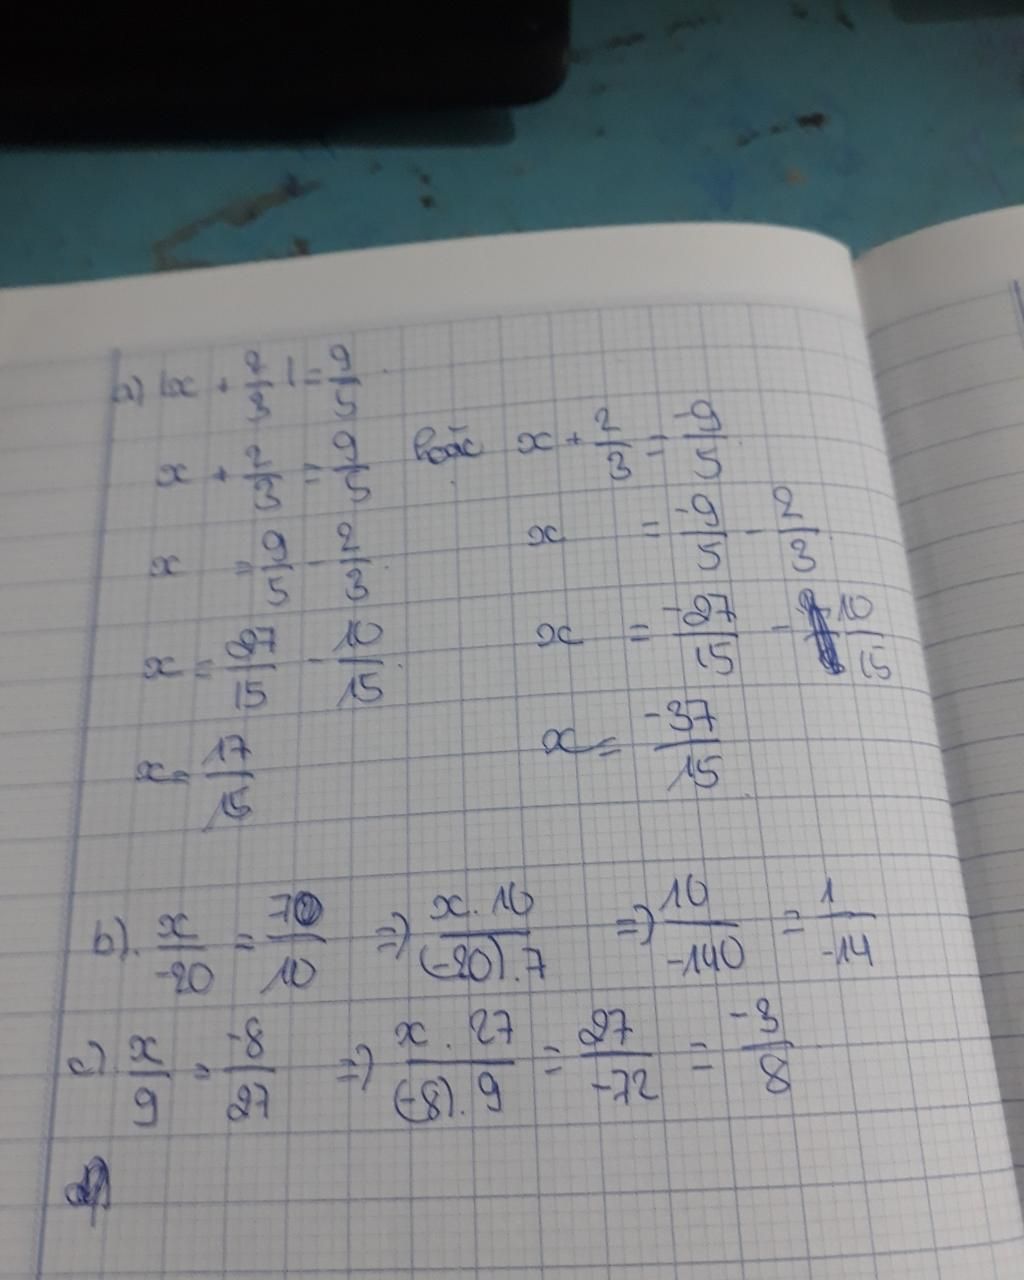 a) |x + 2/3| = 9/5
x + 2/3 = 9/5 hoặc x + 2/3 = -9/5
x = 9/5 - 2/3 x = -9/5 - 2/3
x = 27/15 - 10/15 x = -27/15 - 10/15
x = 17/15 x = -37/15
b). x/-20 = 7/10 => x.10/(-20).7 => 10/-140 = 1/-14
c) x/9 = -8/27 => x.27/(-8).9 = 27/-72 = -3/8